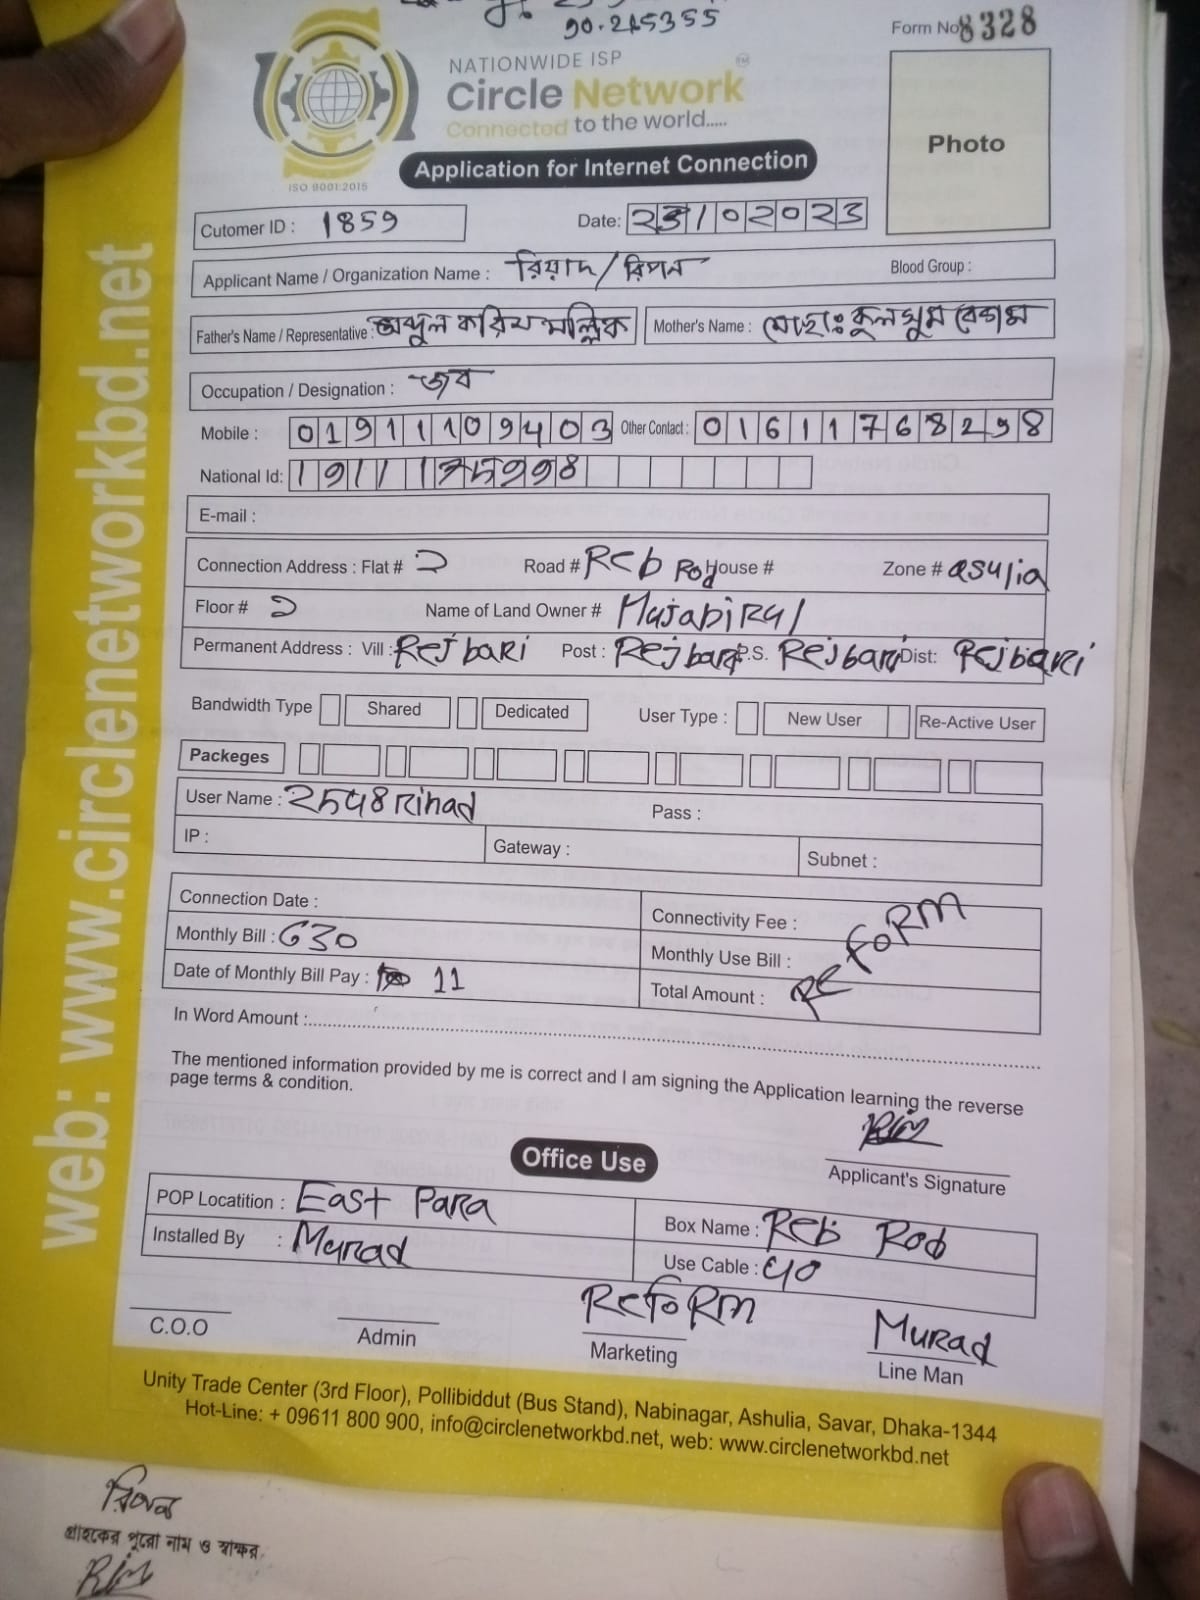 90.215355
Form No 8328
NATIONWIDE ISP
Circle Network
Connected to the world.....
ISO 9001:2015
Application for Internet Connection
Photo
Cutomer ID : 1859 Date: 23/02023
Applicant Name / Organization Name : রিয়াদ/রিপন Blood Group :
Father's Name / Representative : আব্দুল করিম মল্লিক Mother's Name : মোছাঃ কুলসুম বেগম
Occupation / Designation : জব
Mobile : 01911109403 Other Contact : 01611768298
National Id:
E-mail :
Connection Address : Flat # 2 Road # Reb Rod House # Zone # asulia
Floor # 2 Name of Land Owner #
Permanent Address : Vill : Rejbari Post : Rejbari P.S. Rejbari Dist: Rejbari
Bandwidth Type Shared Dedicated User Type : New User Re-Active User
Packeges
User Name : 2548Rihad Pass :
IP : Gateway : Subnet :
Connection Date : Connectivity Fee :
Monthly Bill : 630 Monthly Use Bill :
Date of Monthly Bill Pay : 11 Total Amount :
Reform
In Word Amount :
The mentioned information provided by me is correct and I am signing the Application learning the reverse
page terms & condition.
Applicant's Signature
Office Use
POP Locatition : East Para Box Name : Reb Rod
Installed By : Murad Use Cable : 40
C.O.O Admin Reform Marketing Murad Line Man
Unity Trade Center (3rd Floor), Pollibiddut (Bus Stand), Nabinagar, Ashulia, Savar, Dhaka-1344
Hot-Line: + 09611 800 900, info@circlenetworkbd.net, web: www.circlenetworkbd.net
web: www.circlenetworkbd.net
রিপন
গ্রাহকের পুরো নাম ও স্বাক্ষর